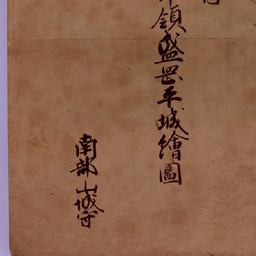 領盛岡平城繪圖
南部山城守